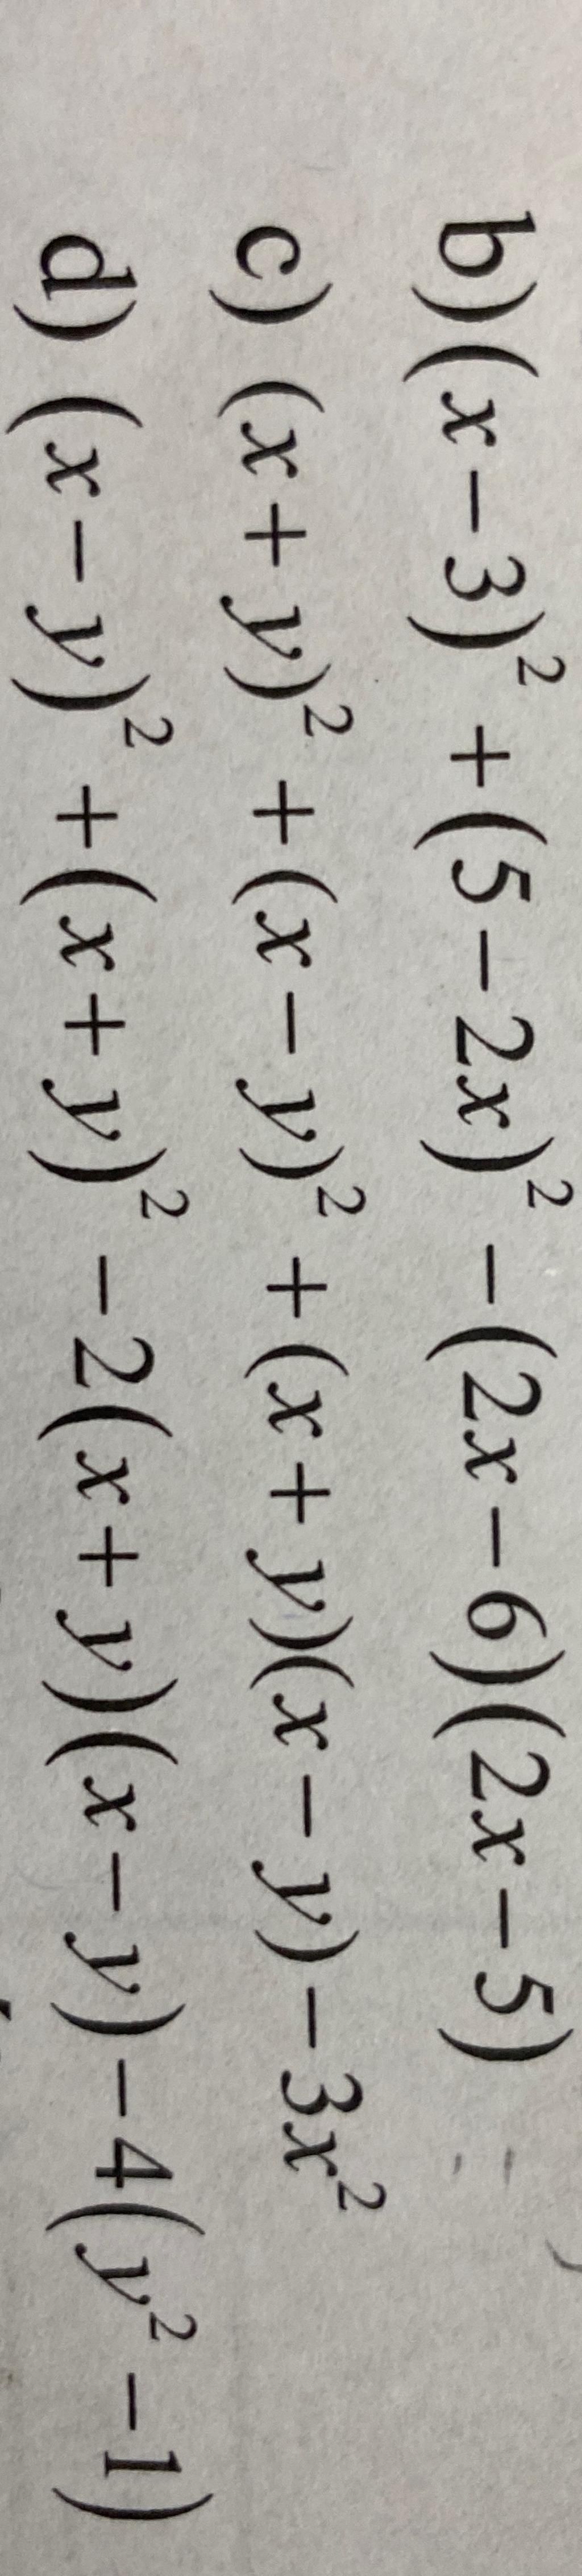 b) (x − 3)² + (5 − 2x)² − (2x − 6)(2x − 5)
c) (x + y)² + (x − y)² + (x + y)(x − y) − 3x²
d) (x − y)² + (x + y)² − 2(x + y)(x − y) − 4(y² − 1)